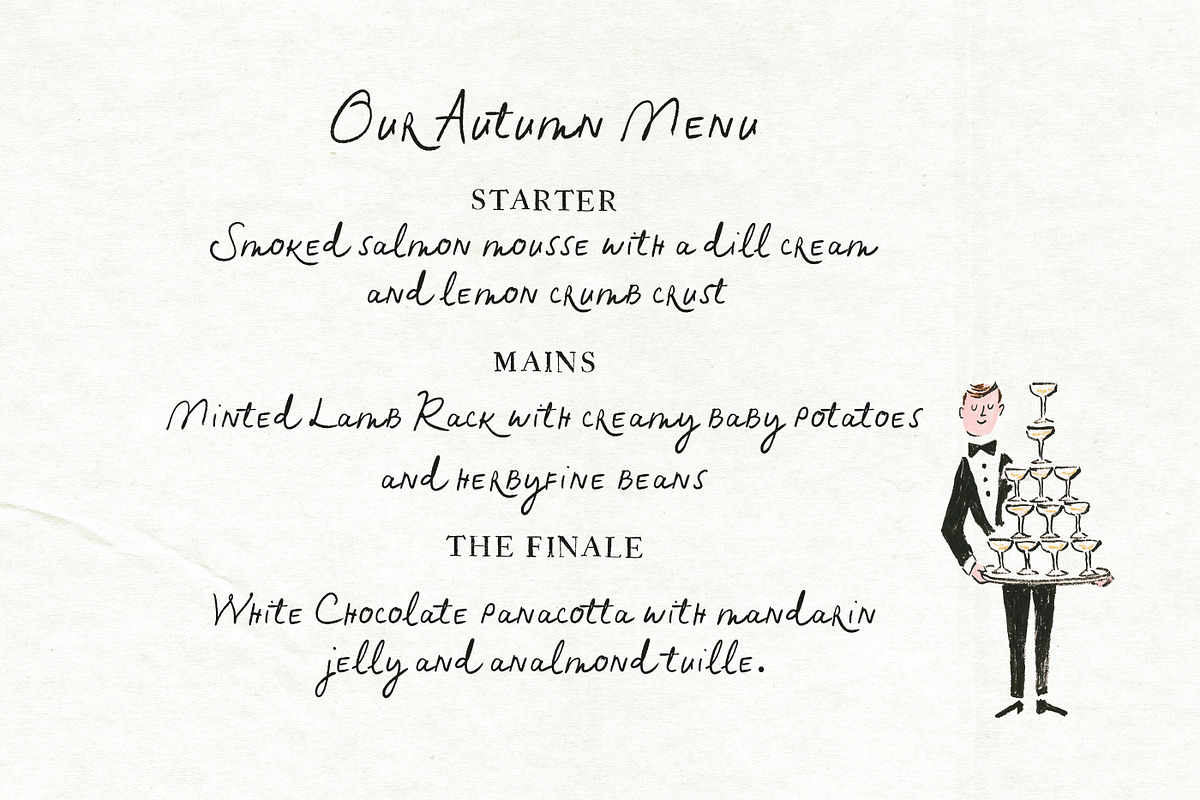 Our Autumn Menu
STARTER
Smoked salmon mousse with a dill cream
and lemon crumb crust
MAINS
Minted Lamb Rack with creamy baby potatoes
and herbyfine beans
THE FINALE
White Chocolate panacotta with mandarin
jelly and analmond tuille.